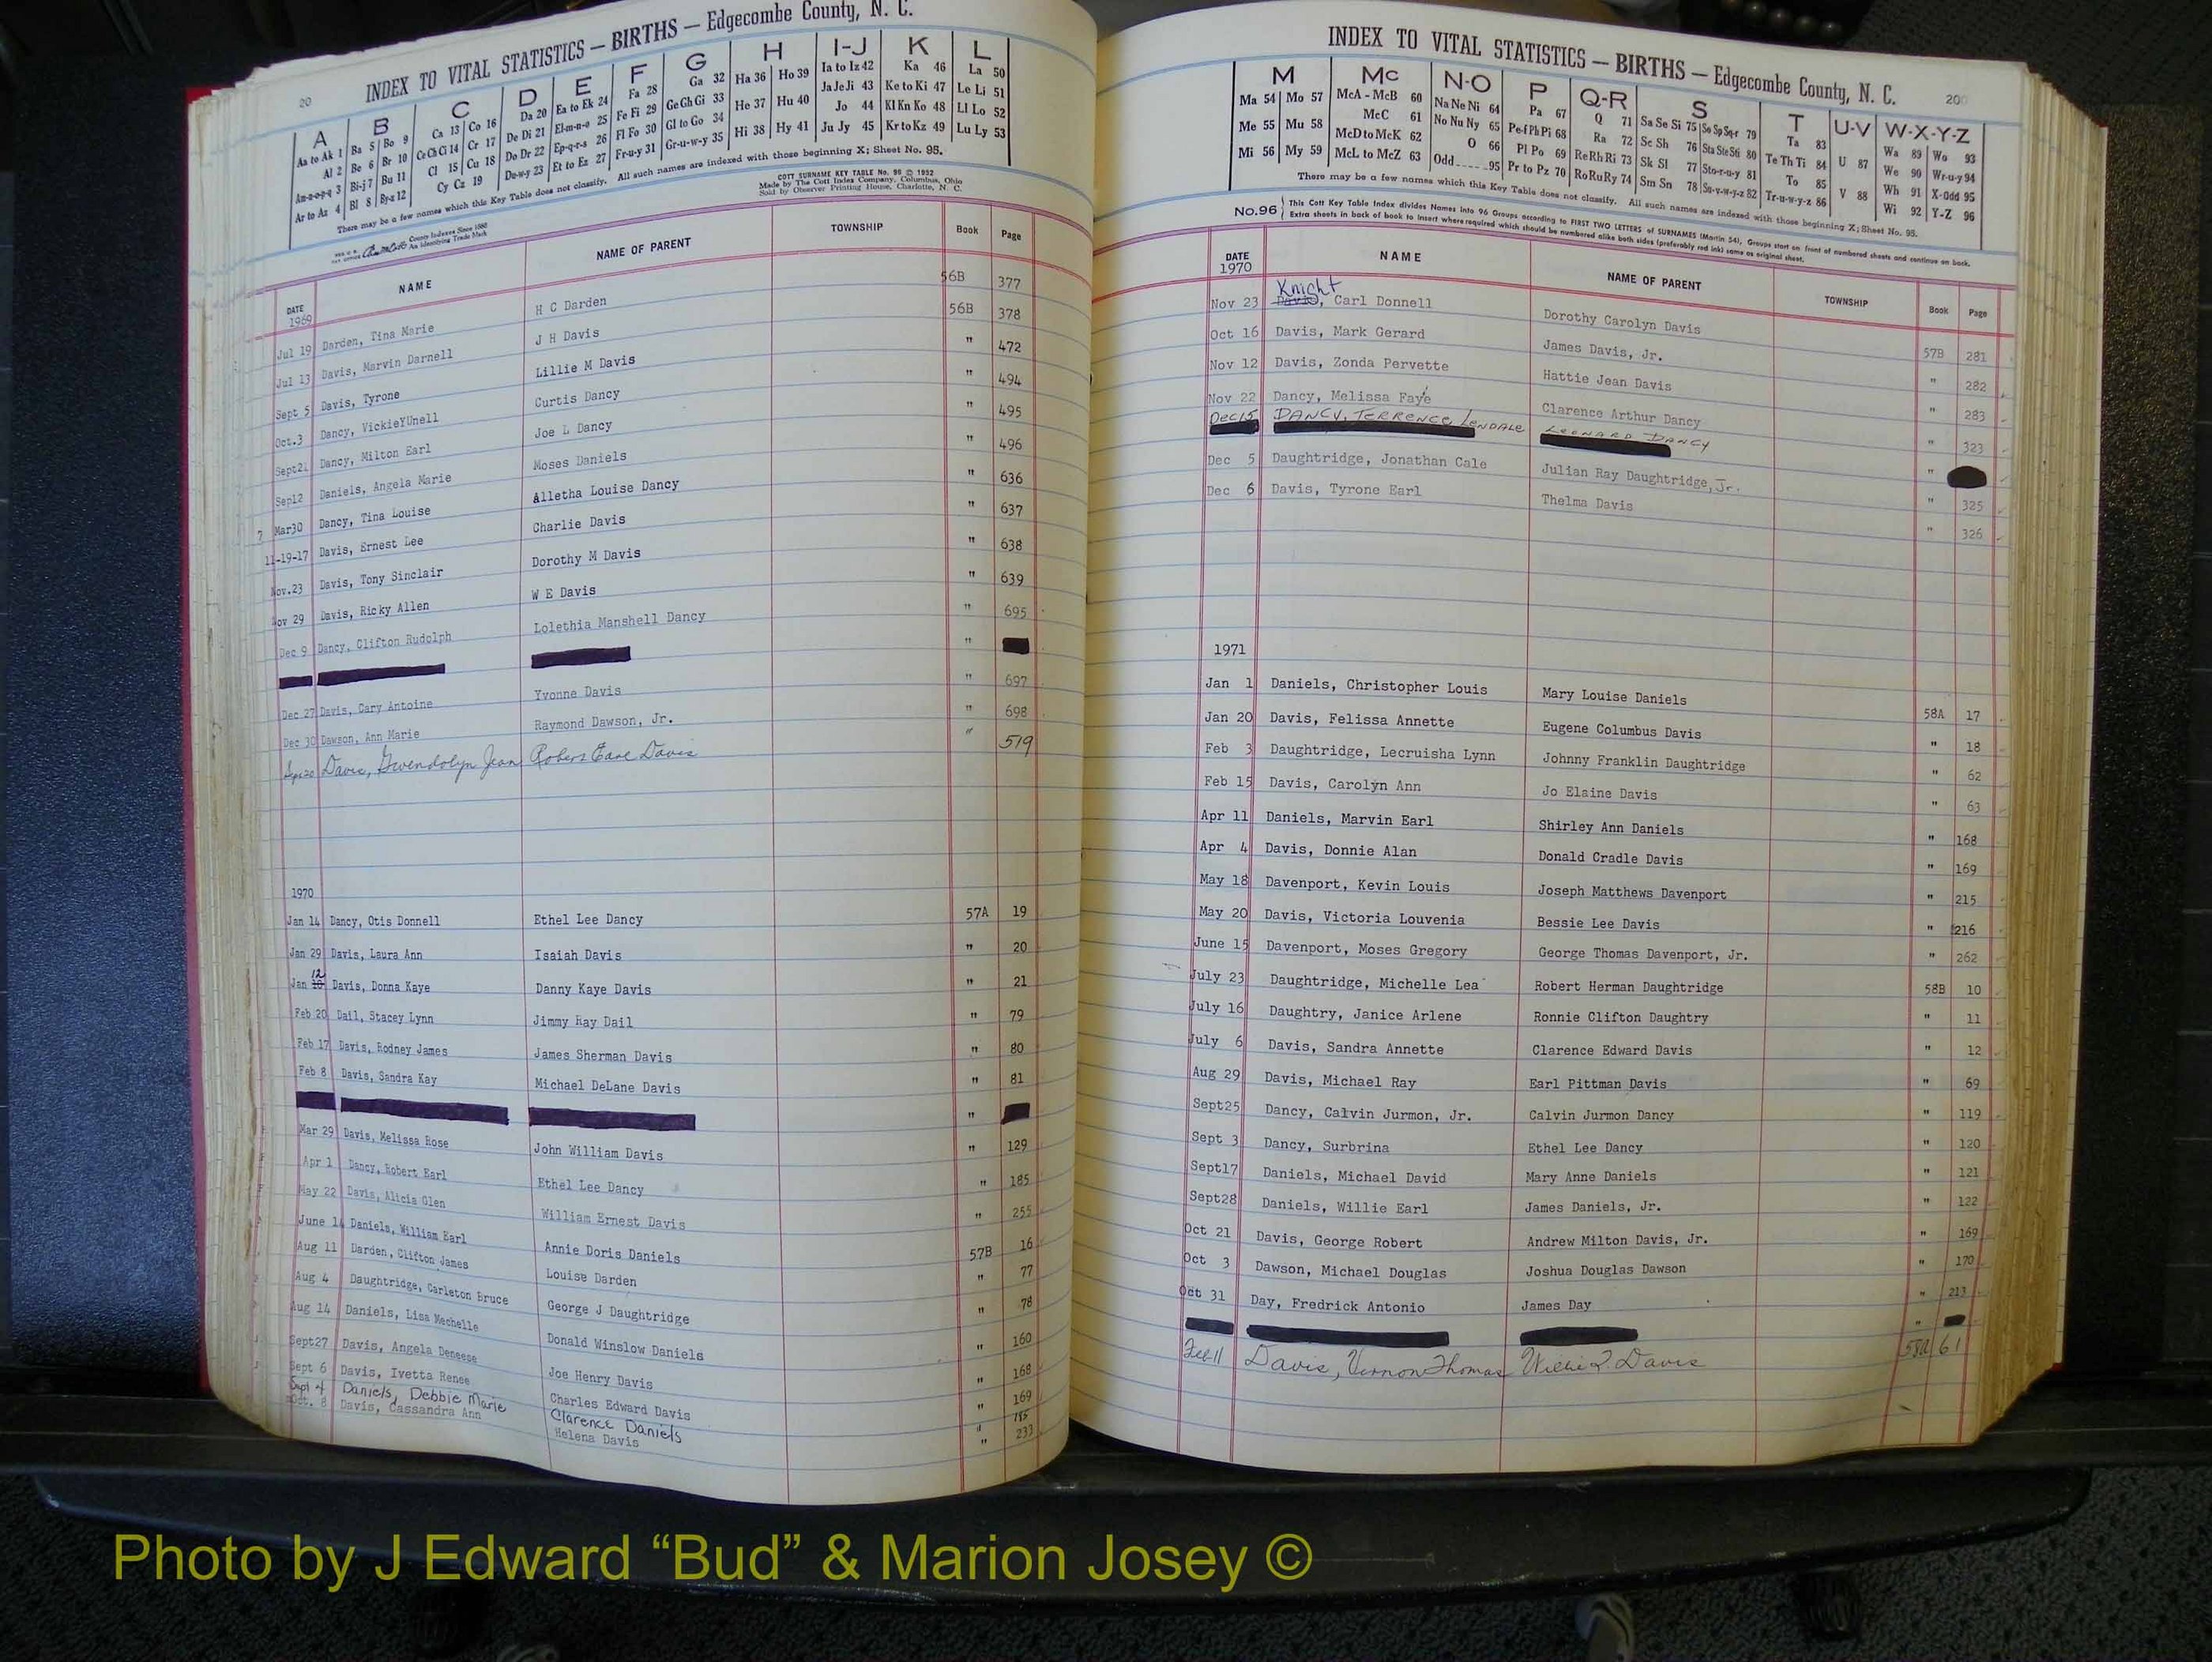 20
INDEX TO VITAL STATISTICS — BIRTHS — Edgecombe County, N. C.
A B C D E F G H I-J K L
Aa to Ak 1 Ba 5 Bo 9 Ca 13 Co 16 Da 20 Ea to Ek 24 Fa 28 Ga 32 Ha 36 Ho 39 Ia to Iz 42 Ka 46 La 50
Al 2 Be 6 Br 10 Ce Ch Ci 14 Cr 17 De Di 21 El-m-n-o 25 Fe Fi 29 Ge Gh Gi 33 He 37 Hu 40 Ja Je Ji 43 Ke to Ki 47 Le Li 51
Am-n-o-p-q 3 Bi-j 7 Bu 11 Cl 15 Cu 18 Do Dr 22 Ep-q-r-s 26 Fl Fo 30 Gl to Go 34 Hi 38 Hy 41 Jo 44 Kl Kn Ko 48 Ll Lo 52
Ar to Az 4 Bl 8 By-z 12 Cy Cz 19 Du-w-y 23 Et to Ez 27 Fr-u-y 31 Gr-u-w-y 35 Ju Jy 45 Kr to Kz 49 Lu Ly 53
There may be a few names which this Key Table does not classify. All such names are indexed with those beginning X; Sheet No. 95.
COTT SURNAME KEY TABLE No. 96 © 1952
Made by The Cott Index Company, Columbus, Ohio
Sold by Observer Printing House, Charlotte, N. C.
County Indexes Since 1888
An Identifying Trade Mark
DATE NAME NAME OF PARENT TOWNSHIP Book Page
1969
Jul 19 Darden, Tina Marie H C Darden 56B 377
Jul 13 Davis, Marvin Darnell J H Davis 56B 378
Sept 5 Davis, Tyrone Lillie M Davis " 472
Oct.3 Dancy, VickieYUnell Curtis Dancy " 494
Sept21 Dancy, Milton Earl Joe L Dancy " 495
Sep12 Daniels, Angela Marie Moses Daniels " 496
7 Mar30 Dancy, Tina Louise Alletha Louise Dancy " 636
11-19-17 Davis, Ernest Lee Charlie Davis " 637
Nov.23 Davis, Tony Sinclair Dorothy M Davis " 638
Nov 29 Davis, Ricky Allen W E Davis " 639
Dec 9 Dancy, Clifton Rudolph Lolethia Manshell Dancy " 695
"
Dec 27 Davis, Cary Antoine Yvonne Davis " 697
Dec 30 Dawson, Ann Marie Raymond Dawson, Jr. " 698
Davis, Gwendolyn Jean Robert Earl Davis " 519
1970
Jan 14 Dancy, Otis Donnell Ethel Lee Dancy 57A 19
Jan 29 Davis, Laura Ann Isaiah Davis " 20
Jan 12 Davis, Donna Kaye Danny Kaye Davis " 21
Feb 20 Dail, Stacey Lynn Jimmy Ray Dail " 79
Feb 17 Davis, Rodney James James Sherman Davis " 80
Feb 8 Davis, Sandra Kay Michael DeLane Davis " 81
"
Mar 29 Davis, Melissa Rose John William Davis " 129
Apr 1 Dancy, Robert Earl Ethel Lee Dancy " 185
May 22 Davis, Alicia Glen William Ernest Davis " 255
June 14 Daniels, William Earl Annie Doris Daniels 57B 16
Aug 11 Darden, Clifton James Louise Darden " 77
Aug 4 Daughtridge, Carleton Bruce George J Daughtridge " 78
Aug 14 Daniels, Lisa Mechelle Donald Winslow Daniels " 160
Sept27 Davis, Angela Deneese Joe Henry Davis " 168
Sept 6 Davis, Ivetta Renee Charles Edward Davis " 169
Sept 4 Daniels, Debbie Marie Clarence Daniels " 185
Oct. 8 Davis, Cassandra Ann Helena Davis " 233
INDEX TO VITAL STATISTICS — BIRTHS — Edgecombe County, N. C. 200
M Mc N-O P Q-R S T U-V W-X-Y-Z
Ma 54 Mo 57 McA - McB 60 Na Ne Ni 64 Pa 67 Q 71 Sa Se Si 75 So Sp Sq-r 79 Ta 83 Wa 89 Wo 93
Me 55 Mu 58 McC 61 No Nu Ny 65 Pe-f Ph Pi 68 Ra 72 Sc Sh 76 Sta Ste Sti 80 Te Th Ti 84 U 87 We 90 Wr-u-y 94
Mi 56 My 59 McD to McK 62 O 66 Pl Po 69 Re Rh Ri 73 Sk Sl 77 Sto-r-u-y 81 To 85 V 88 Wh 91 X-Odd 95
McL to McZ 63 Odd 95 Pr to Pz 70 Ro Ru Ry 74 Sm Sn 78 Su-v-w-y-z 82 Tr-u-w-y-z 86 Wi 92 Y-Z 96
There may be a few names which this Key Table does not classify. All such names are indexed with those beginning X; Sheet No. 95.
No.96 This Cott Key Table Index divides Names into 96 Groups according to FIRST TWO LETTERS of SURNAMES (Martin 54), Groups start on front of numbered sheets and continue on back.
Extra sheets in back of book to insert where required which should be numbered alike both sides (preferably red ink) same as original sheet.
DATE NAME NAME OF PARENT TOWNSHIP Book Page
1970
Knight
Nov 23 Davis, Carl Donnell Dorothy Carolyn Davis 57B 281
Oct 16 Davis, Mark Gerard James Davis, Jr. " 282
Nov 12 Davis, Zonda Pervette Hattie Jean Davis " 283
Nov 22 Dancy, Melissa Faye Clarence Arthur Dancy " 323
Dec 15 DANCY, TERRENCE LENDALE LEONARD DANCY "
Dec 5 Daughtridge, Jonathan Cale Julian Ray Daughtridge, Jr. " 325
Dec 6 Davis, Tyrone Earl Thelma Davis " 326
1971
Jan 1 Daniels, Christopher Louis Mary Louise Daniels 58A 17
Jan 20 Davis, Felissa Annette Eugene Columbus Davis " 18
Feb 3 Daughtridge, Lecruisha Lynn Johnny Franklin Daughtridge " 62
Feb 15 Davis, Carolyn Ann Jo Elaine Davis " 63
Apr 11 Daniels, Marvin Earl Shirley Ann Daniels " 168
Apr 4 Davis, Donnie Alan Donald Cradle Davis " 169
May 18 Davenport, Kevin Louis Joseph Matthews Davenport " 215
May 20 Davis, Victoria Louvenia Bessie Lee Davis " 216
June 15 Davenport, Moses Gregory George Thomas Davenport, Jr. " 262
July 23 Daughtridge, Michelle Lea Robert Herman Daughtridge 58B 10
July 16 Daughtry, Janice Arlene Ronnie Clifton Daughtry " 11
July 6 Davis, Sandra Annette Clarence Edward Davis " 12
Aug 29 Davis, Michael Ray Earl Pittman Davis " 69
Sept25 Dancy, Calvin Jurmon, Jr. Calvin Jurmon Dancy " 119
Sept 3 Dancy, Surbrina Ethel Lee Dancy " 120
Sept17 Daniels, Michael David Mary Anne Daniels " 121
Sept28 Daniels, Willie Earl James Daniels, Jr. " 122
Oct 21 Davis, George Robert Andrew Milton Davis, Jr. " 169
Oct 3 Dawson, Michael Douglas Joshua Douglas Dawson " 170
Oct 31 Day, Fredrick Antonio James Day " 213
"
Feb 11 Davis, Vernon Thomas Willie Davis 58A 61
Photo by J Edward “Bud” & Marion Josey ©